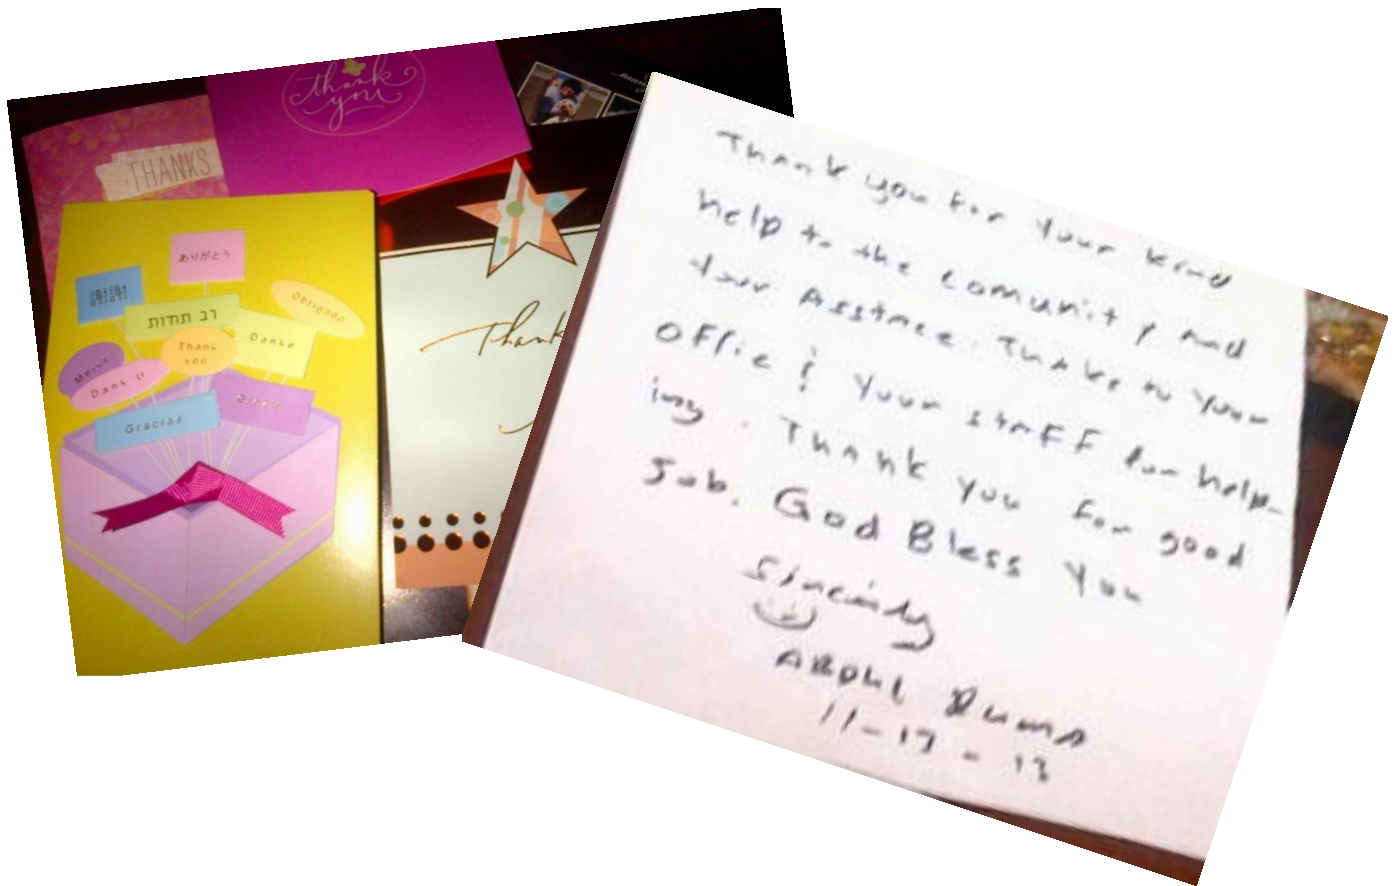 thank
you
THANKS
ありがとう
Obrigado
רב תודות
Danke
Thank
you
Merci
Dank U
Gracias
Thank
Thank you for your kind
help to the comunity and
your Asstnce. Thanks to your
offic & your staff for help-
ing. Thank you for good
Job. God Bless you
ABDUL
11-17-13